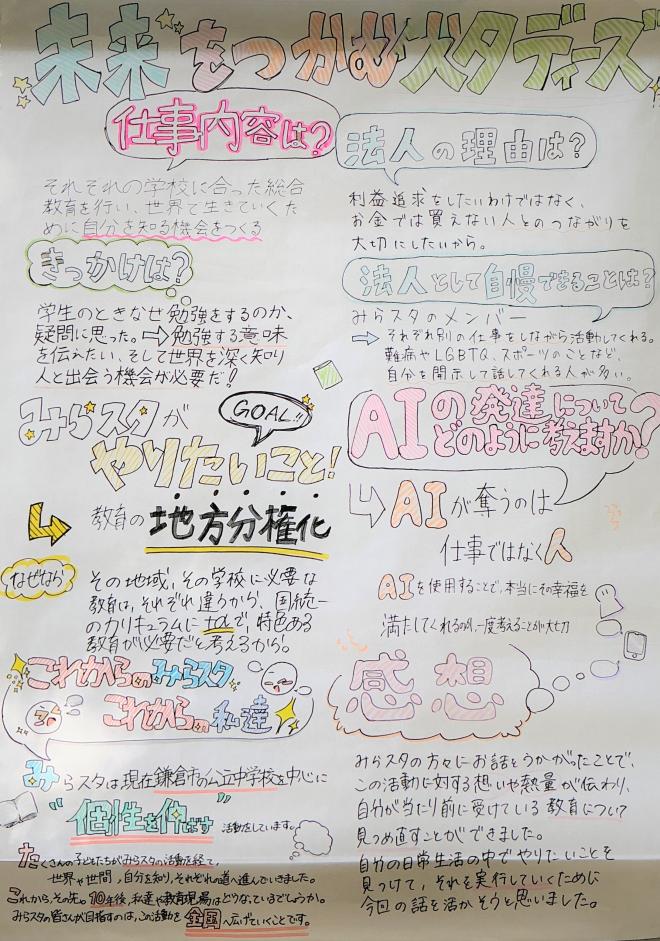 未来をつかむスタディーズ
仕事内容は?
それぞれの学校に合った総合
教育を行い、世界で生きていくた
めに自分を知る機会をつくる
きっかけは?
学生のときなぜ勉強をするのか、
疑問に思った。⇒勉強する意味
を伝えたい、そして世界を深く知り
人と出会う機会が必要だ!
みらスタが
GOAL!!
やりたいこと!
教育の地方分権化
なぜなら
その地域、その学校に必要な
教育は、それぞれ違うから、国統一
のカリキュラムに+αで、特色ある
教育が必要だと考えるから。
これからのみらスタ
これからの私達
みらスタは現在鎌倉市の公立中学校を中心に
"個性を伸ばす"活動をしています。
たくさんの子どもたちがみらスタの活動を経て、
世界や世間、自分を知り、それぞれの道へ進んでいきました。
これから、その先。10年後、私達や教育現場はどうなっているでしょうか。
みらスタの皆さんが目指すのは、この活動を全国へ広げていくことです。
法人の理由は?
利益追求をしたいわけではなく、
お金では買えない人とのつながりを
大切にしたいから。
法人として自慢できることは?
みらスタのメンバー
⇒それぞれ別の仕事をしながら活動してくれる。
難病やLGBTQ、スポーツのことなど、
自分を開示して話してくれる人が多い。
AIの発達について
どのように考えますか?
AIが奪うのは
仕事ではなく人
AIを使用することで、本当にその幸福を
満たしてくれるのか、一度考えることが大切
感想
みらスタの方々にお話をうかがったことで、
この活動に対する想いや熱量が伝わり、
自分が当たり前に受けている教育について
見つめ直すことができました。
自分の日常生活の中でやりたいことを
見つけて、それを実行していくために
今回の話を活かそうと思いました。